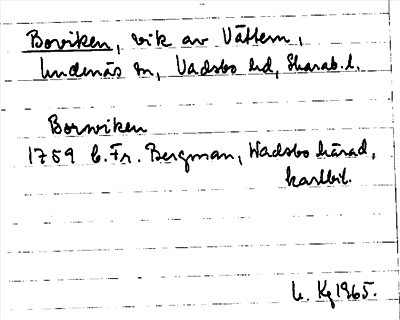 Boviken, vik av Vättern,
Undenäs sn, Vadsbo hd, Skarab. l.
Borwiken
1759 C. Fr. Bergman, Wadsbo härad,
kartbil.
Kg 1965.